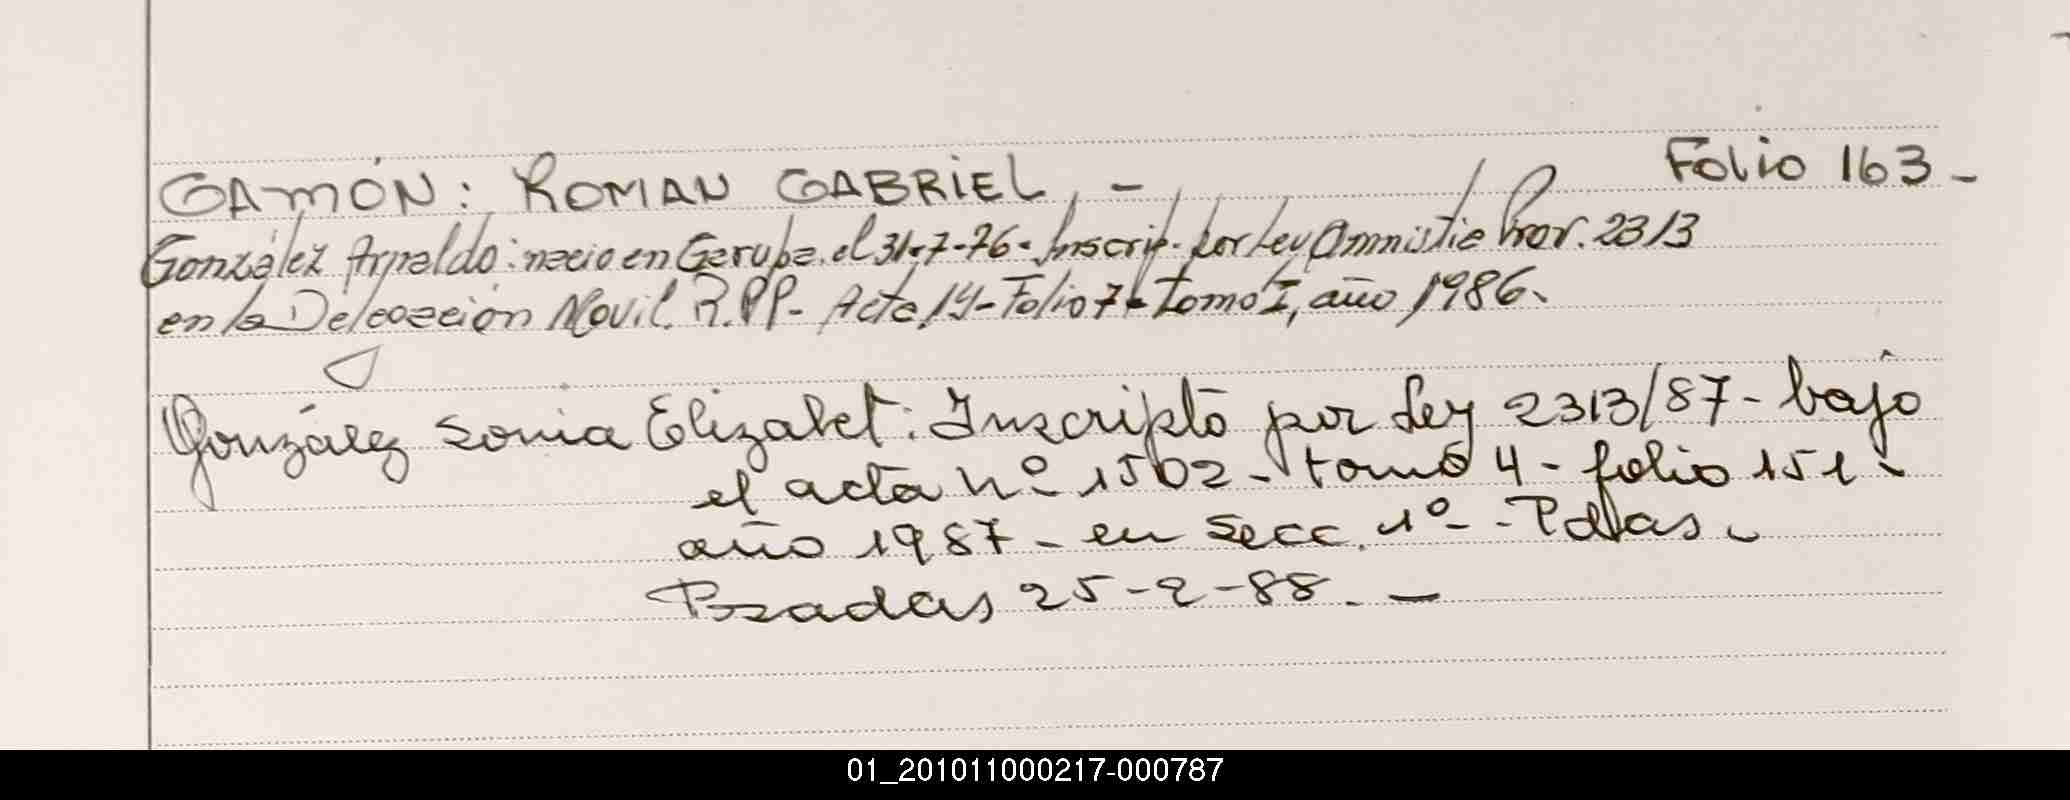 GAMÓN: ROMAN GABRIEL, - Folio 163 -
González Arnaldo: nacio en Garupa, el 31-7-76. Inscrip. por Ley Amnistia Prov. 2313
en la Delegación Movil. R.PP. - Acta 14 - Folio 7 - Tomo I, año 1986.
González Sonia Elizabet: Inscripto por Ley 2313/87 - bajo
el acta nº 1502 - tomo 4 - folio 151 -
año 1987 - en Secc. 1º - Pdas.
Posadas 25-2-88. -
01_201011000217-000787